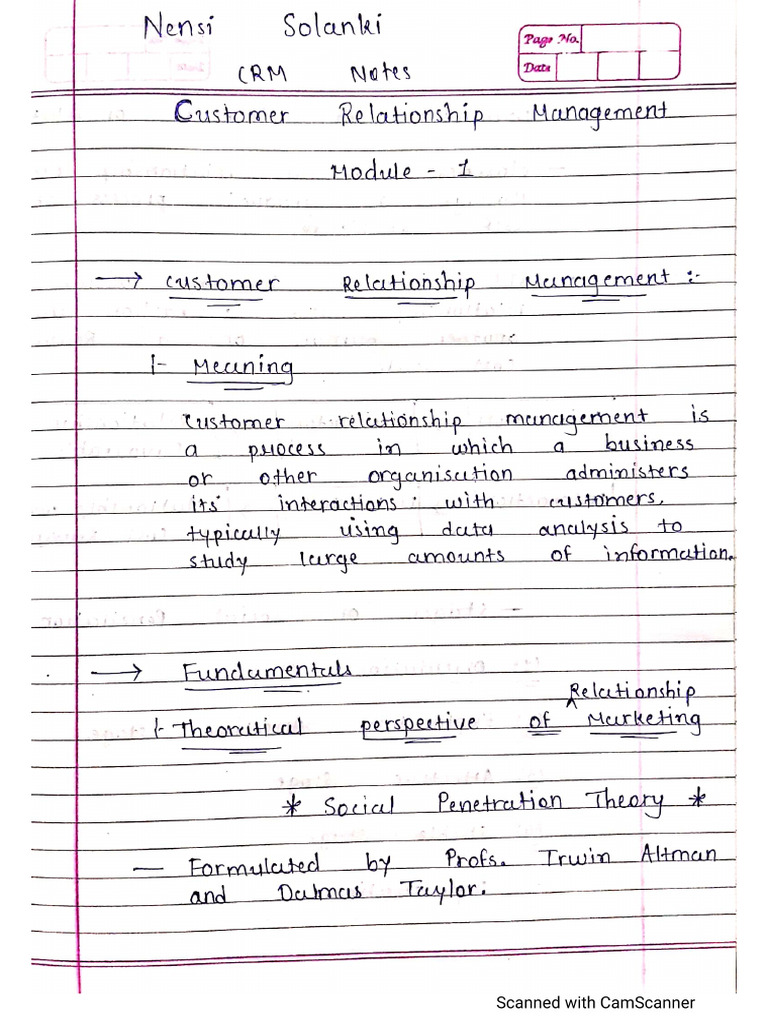 Nensi Solanki
Page No.
Date
CRM Notes
Customer Relationship Management
Module - 1
→ Customer Relationship Management :-
1- Meaning
Customer relationship management is
a process in which a business
or other organisation administers
its interactions with customers,
typically using data analysis to
study large amounts of information.
→ Fundamentals
Relationship
1- Theoratical perspective of ^ Marketing
* Social Penetration Theory *
- Formulated by Profs. Irwin Altman
and Dalmas Taylor.
Scanned with CamScanner